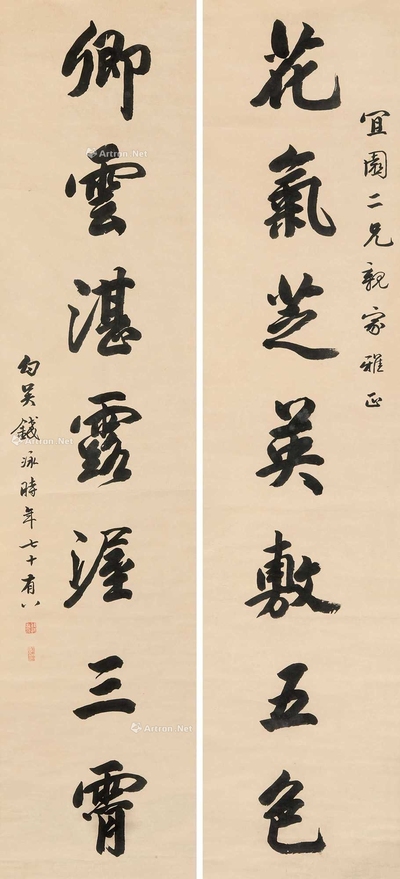 宜園二兄親家雅正
花氣芝英敷五色
卿雲湛露渥三霄
勾吳錢泳時年七十有八
Artron.Net
Artron.Net
Artron.Net
Artron.Net
Artron.Net
Artron.Net